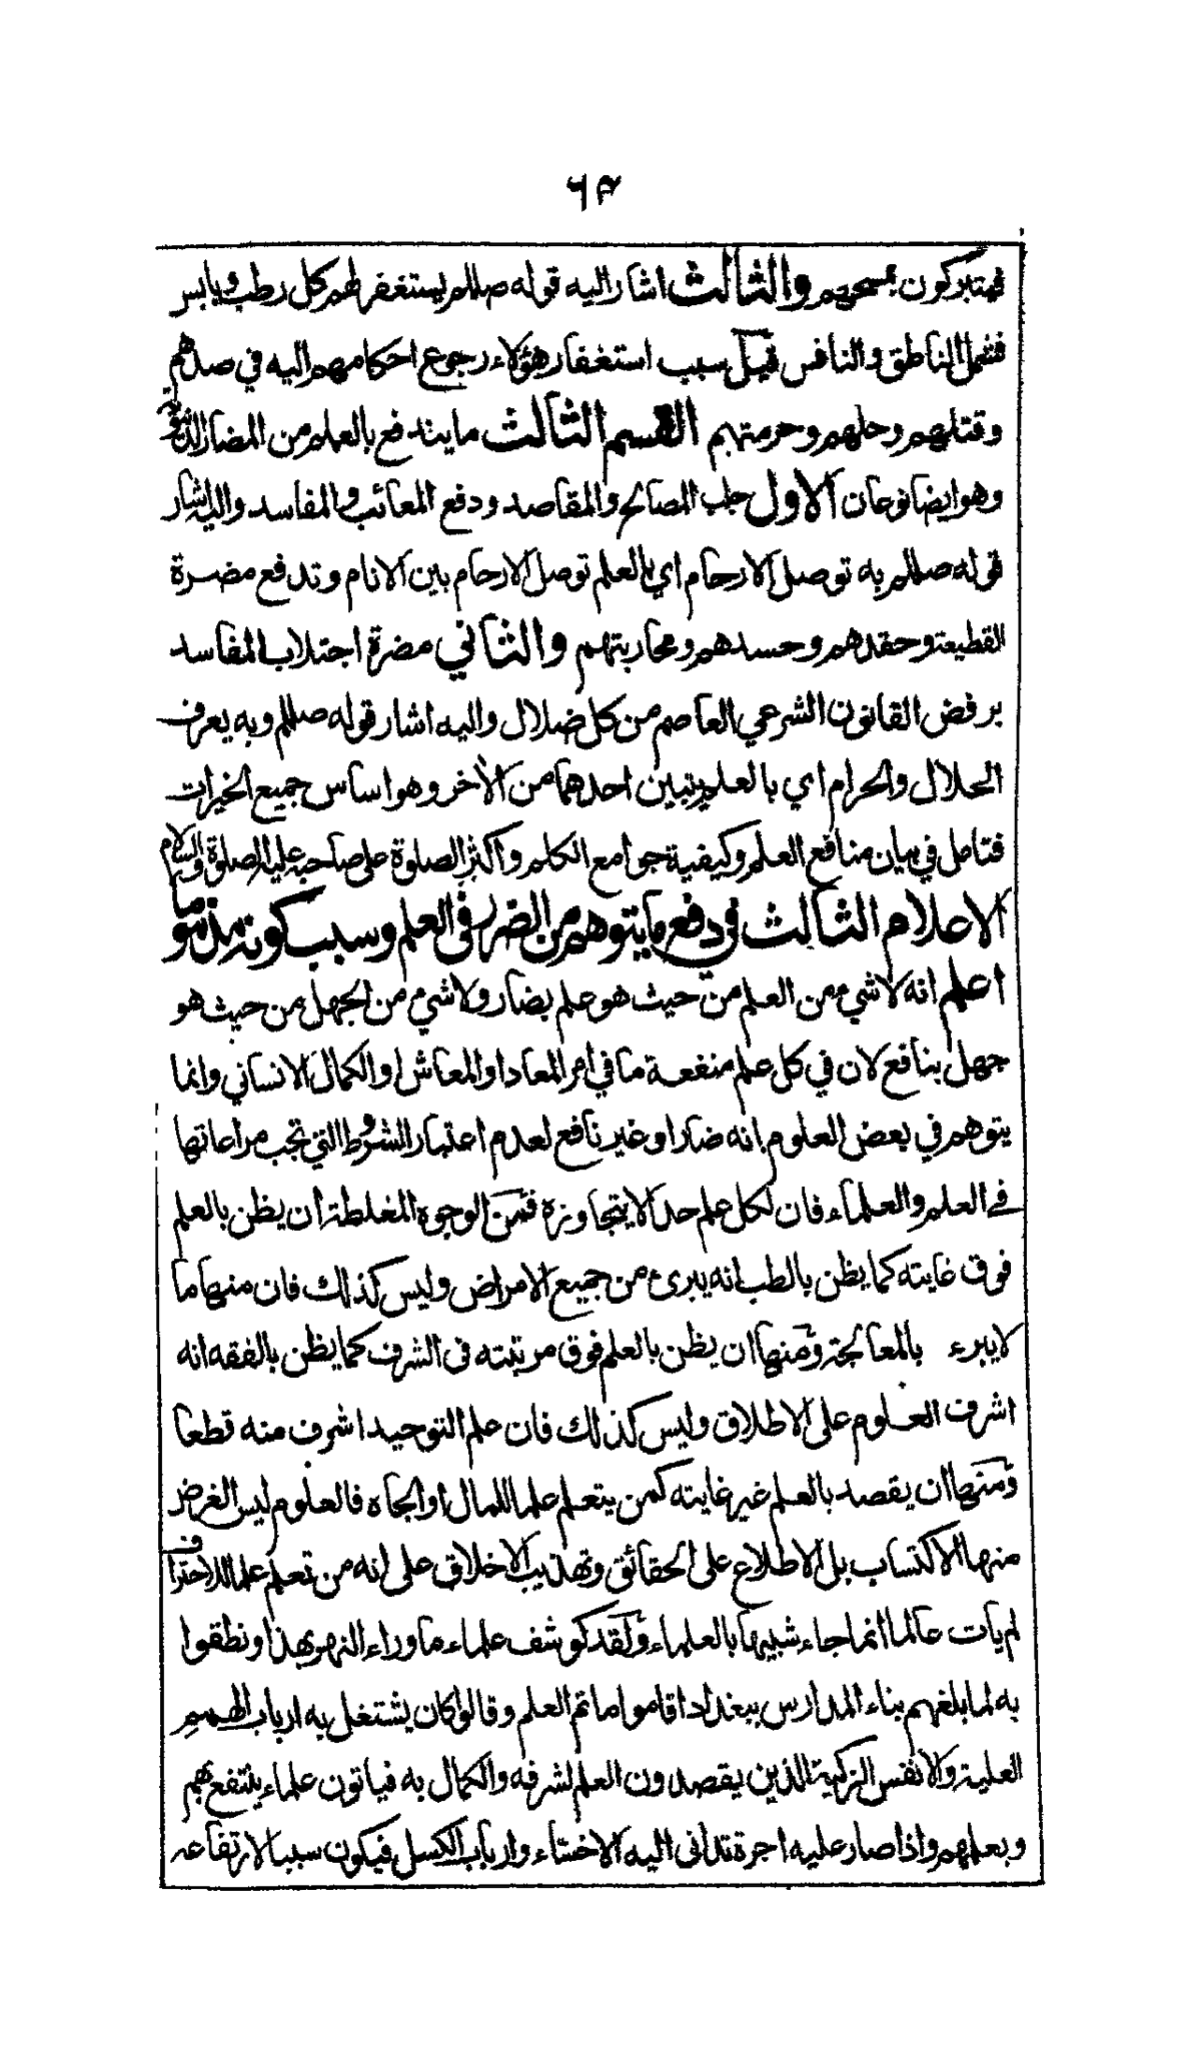 ٦٣
فيتبركون بمسحهم والثالث اشار اليه قوله صللم يستغفر لهم كل رطب ويابس
فشمل الناطق والنافس قيل سبب استغفار هؤلاء رجوع احكامهم اليه في صدهم
وقتلهم وحلهم وحرمتهم القسم الثالث ما يندفع بالعلم من المضار
وهو ايضا نوعان الاول جلب المصالح والمقاصد ودفع المعائب والمفاسد واليه اشار
قوله صللم به توصل الارحام اي بالعلم توصل الارحام بين الانام وتدفع مضرة
القطيعة وحقدهم وحسدهم ومحاربتهم والثاني مضرة اجتلاب المفاسد
برفض القانون الشرعي العاصم من كل ضلال واليه اشار قوله صللم وبه يعرف
الحلال والحرام اي بالعلم يتبين احدهما من الأخر وهو اساس جميع الخيرات
فتامل في بيان منافع العلم وكيفية جوامع الكلم واكثر الصلوة على صاحبه عليه الصلوة والسلام
الاعلام الثالث في دفع ما يتوهم من الضرر في العلم وسبب كونه مذموما
اعلم انه لا شيء من العلم من حيث هو علم بضار ولا شيء من الجهل من حيث هو
جهل بنافع لان في كل علم منفعة ما في امر المعاد او المعاش او الكمال الانساني وانما
يتوهم في بعض العلوم انه ضار او غير نافع لعدم اعتبار الشروط التي تجب مراعاتها
في العلم والعلماء فان لكل علم حدا لا يتجاوزه فمن الوجوه المغلطة ان يظن بالعلم
فوق غايته كما يظن بالطب انه يبرئ من جميع الامراض وليس كذلك فان منها ما
لا يبرء بالمعالجة ومنها ان يظن بالعلم فوق مرتبته في الشرف كما يظن بالفقه انه
اشرف العلوم على الاطلاق وليس كذلك فان علم التوحيد اشرف منه قطعا
ومنها ان يقصد بالعلم غير غايته كمن يتعلم علما للمال او الجاه فالعلوم ليس الغرض
منها الاكتساب بل الاطلاع على الحقائق وتهذيب الاخلاق على انه من تعلم علما للاحتراف
لم يات عالما انما جاء شبيها بالعلماء ولقد كوشف علماء ما وراء النهر بهذا ونطقوا
به لما بلغهم بناء المدارس ببغداد اقاموا ماتم العلم وقالوا كان يشتغل به ارباب الهمم
العلية والانفس الزكية الذين يقصدون العلم لشرفه والكمال به فياتون علماء ينتفع بهم
وبعلمهم واذا صار عليه اجرة تدانى اليه الاخساء وارباب الكسل فيكون سببا لارتفاعه